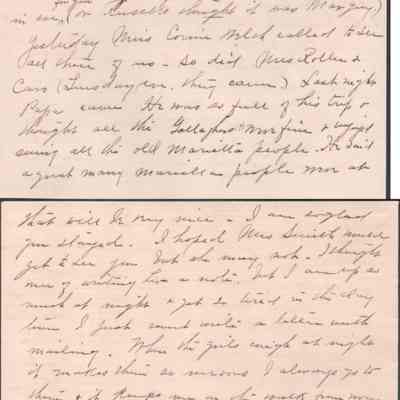 in eve, (or Russell thought it was Margery)
Yesterday Miss Corrie Welch called to see
all three of us - So did Mrs Roller &
Caro (Tuesday eve. they came) Last night
Papa came He was so full of his trip &
thought all the Gallaghers were fine & enjoyed
seeing all the old Marietta people. He said
a great many Marietta people were at
that will be very nice - I am so glad
you stayed. I hoped Mrs Smith would
get to see you but she may not. I thought
once of writing her a note. but I am up so
much at night & get so tired in the day
time I just cant write a letter worth
mailing. When the girls cough at night
it makes them so nervous I always go to
them & it keeps me on the walk